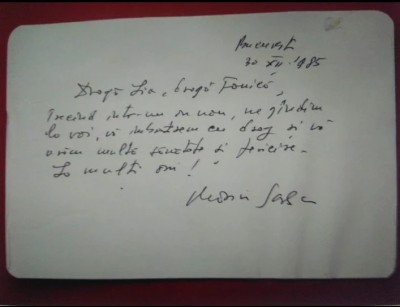 București
30 XII 1985
Dragă Lia, dragă Tonică,
Trecînd într-un an nou, ne gîndim
la voi, vă îmbrățișăm cu drag și vă
urăm multă sănătate și fericire.
La mulți ani!